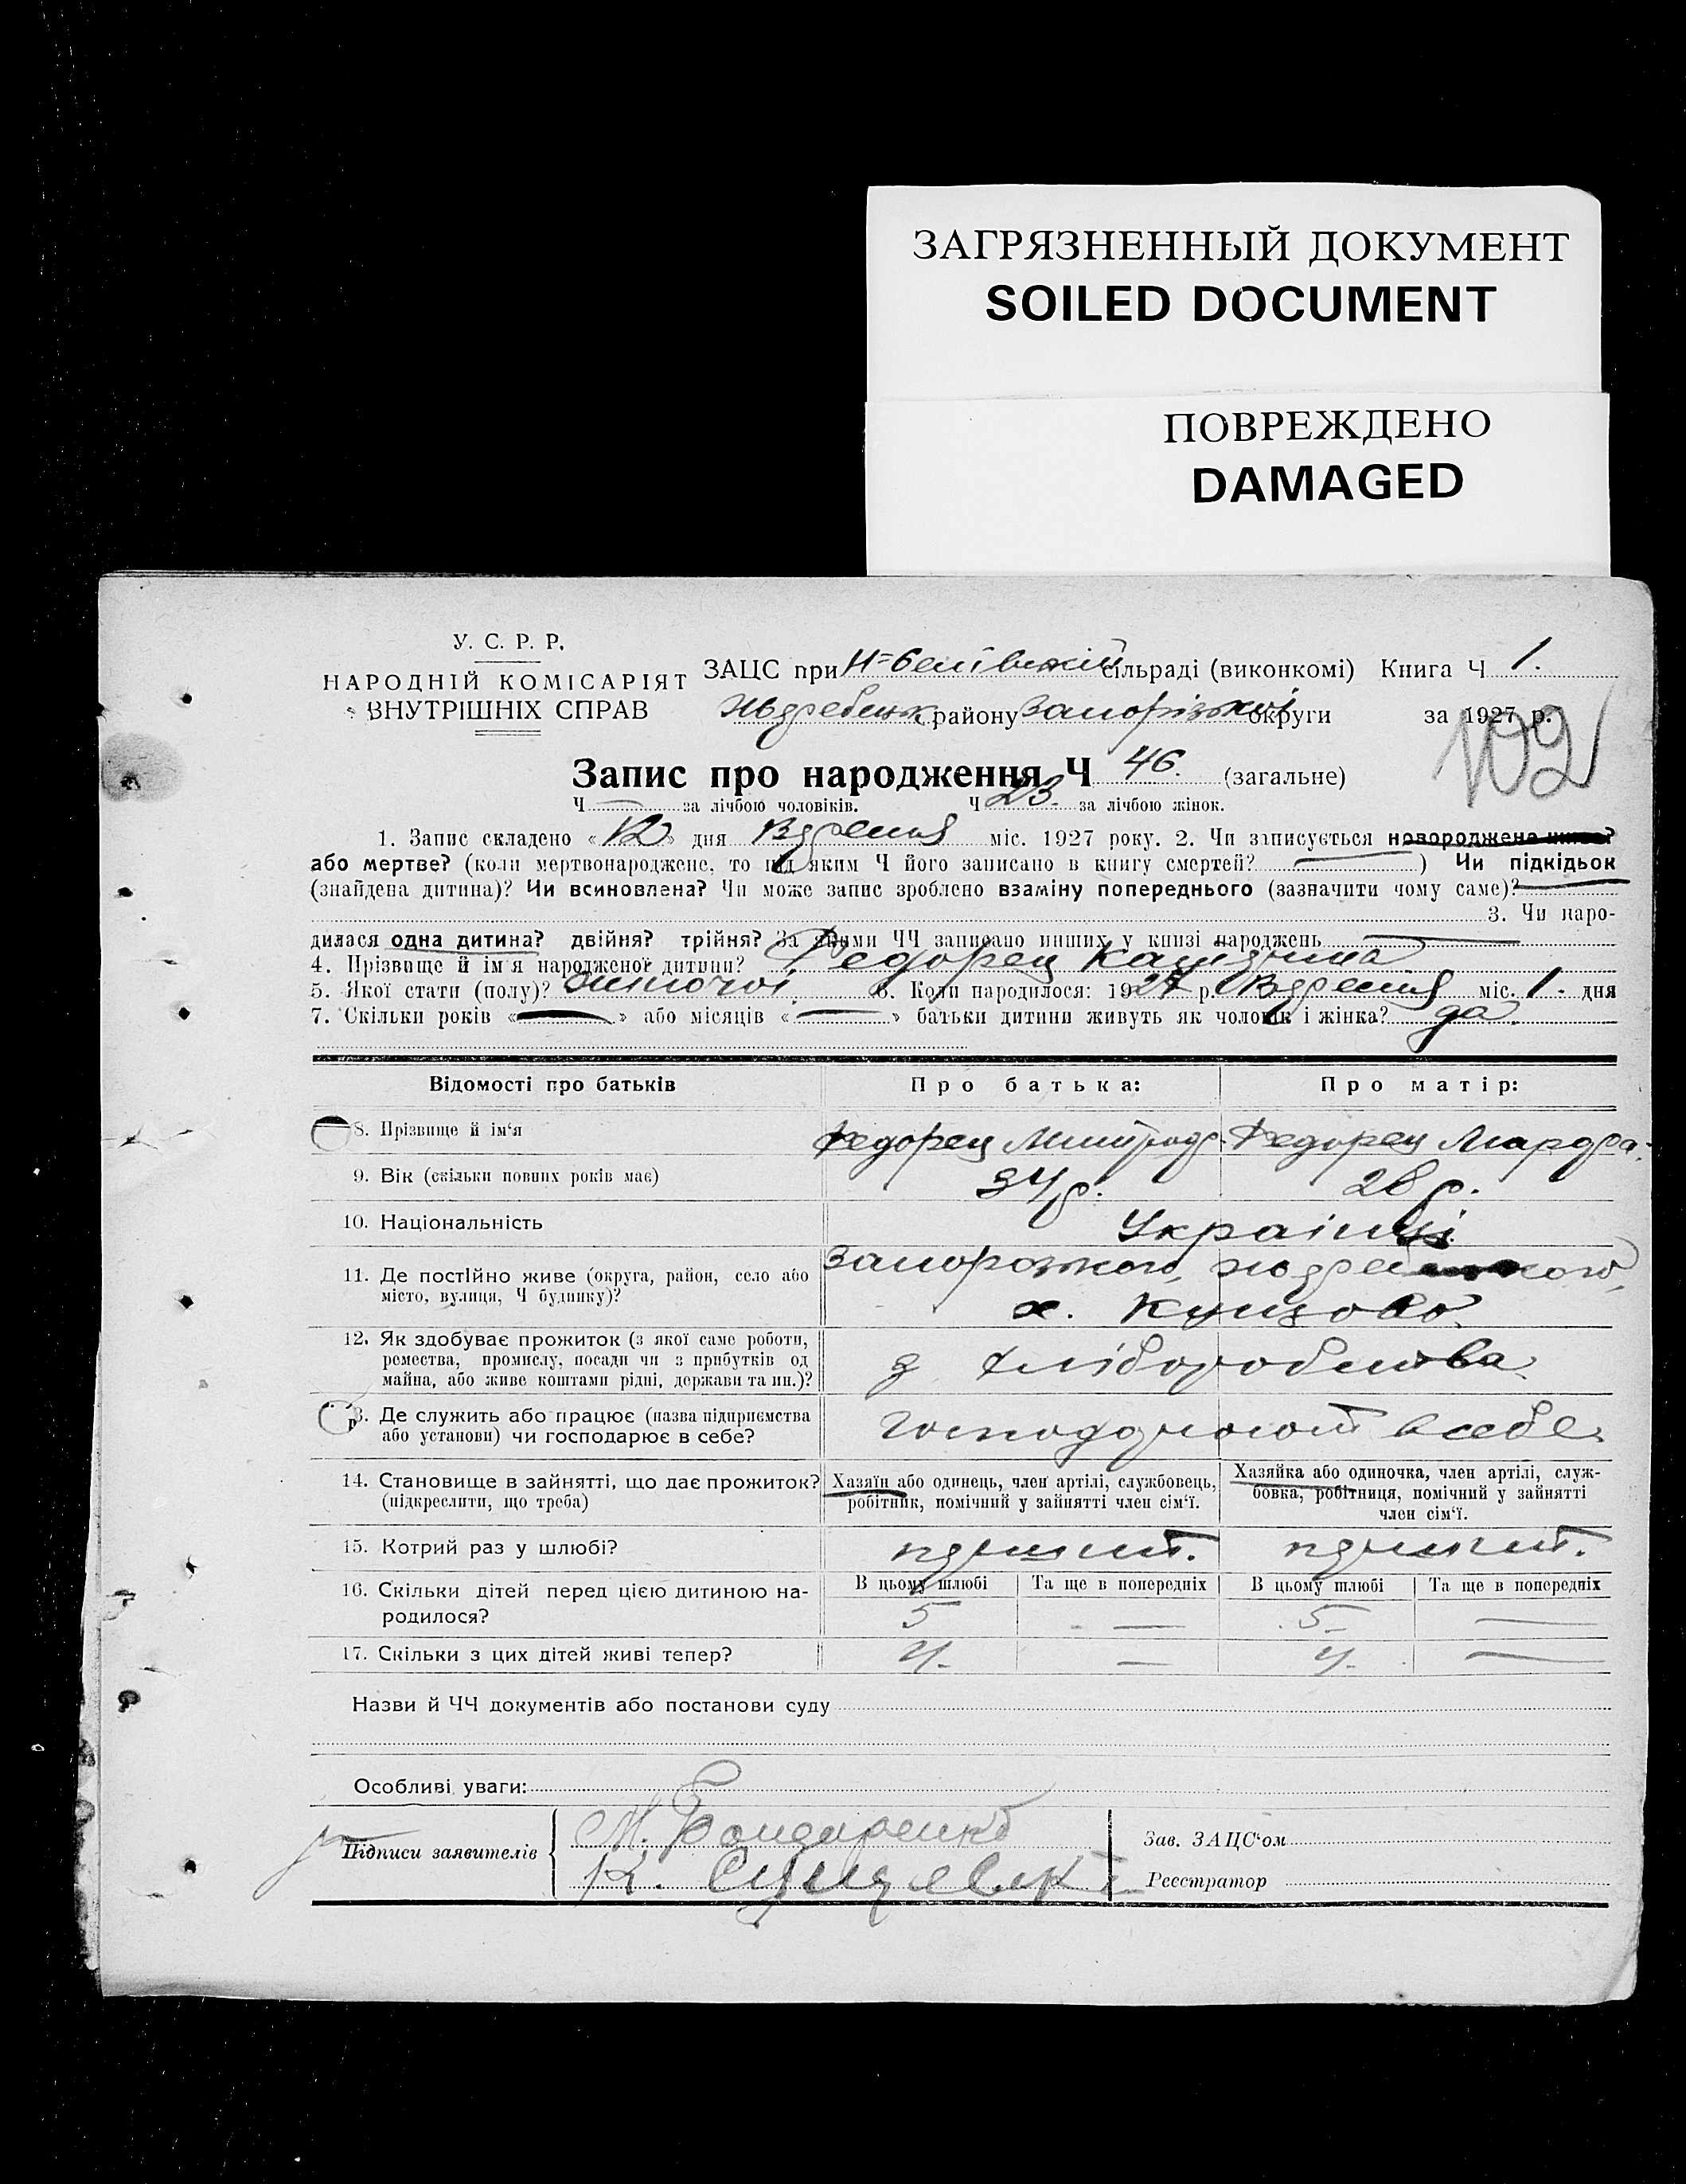 ЗАГРЯЗНЕННЫЙ ДОКУМЕНТ
SOILED DOCUMENT
ПОВРЕЖДЕНО
DAMAGED
У. С. Р. Р.
НАРОДНІЙ КОМІСАРІЯТ
ВНУТРІШНІХ СПРАВ
ЗАЦС при сільраді (виконкомі) Книга Ч 1.
району Запорізької округи за 1927 р.
102
Запис про народження Ч 46. (загальне)
Ч — за лічбою чоловіків. Ч 23. за лічбою жінок.
1. Запис складено «12» дня Вдресня міс. 1927 року. 2. Чи записується новороджена живе?
або мертве? (коли мертвонароджене, то під яким Ч його записано в книгу смертей? —) Чи підкідьок
(знайдена дитина)? Чи всиновлена? Чи може запис зроблено взаміну попереднього (зазначити чому саме)? —
3. Чи наро-
дилася одна дитина? двійня? трійня? За якими ЧЧ записано инших у книзі народжень —
4. Прізвище й ім'я народженої дитини? Федорец
5. Якої стати (полу)? жіночої. 6. Коли народилося: 1927 р. Вдресня міс. 1 - дня
7. Скільки років «—» або місяців «—» батьки дитини живуть як чоловік і жінка? да.
Відомості про батьків Про батька: Про матір:
8. Прізвище й ім'я Федорец Митроф. Федорец Марфа.
9. Вік (скільки повних років має) 34 р. 28 р.
10. Національність Українці
11. Де постійно живе (округа, район, село або Запорожского,
місто, вулиця, Ч будинку)? х. Купцово
12. Як здобуває прожиток (з якої саме роботи,
ремества, промислу, посади чи з прибутків од з хліборобства
майна, або живе коштами рідні, держави та ин.)?
13. Де служить або працює (назва підприємства
або установи) чи господарює в себе? в себе
14. Становище в зайнятті, що дає прожиток? Хазяїн або одинець, член артілі, службовець, Хазяйка або одиночка, член артілі, служ-
(підкреслити, що треба) робітник, помічний у зайнятті член сім'ї. бовка, робітниця, помічний у зайнятті
член сім'ї.
15. Котрий раз у шлюбі?
16. Скільки дітей перед цією дитиною на- В цьому шлюбі Та ще в попередніх В цьому шлюбі Та ще в попередніх
родилося? 5 — 5 —
17. Скільки з цих дітей живі тепер? 4. — 4. —
Назви й ЧЧ документів або постанови суду
Особливі уваги:
Підписи заявителів М. Бондаренко Зав. ЗАЦС'ом
К. Реєстратор